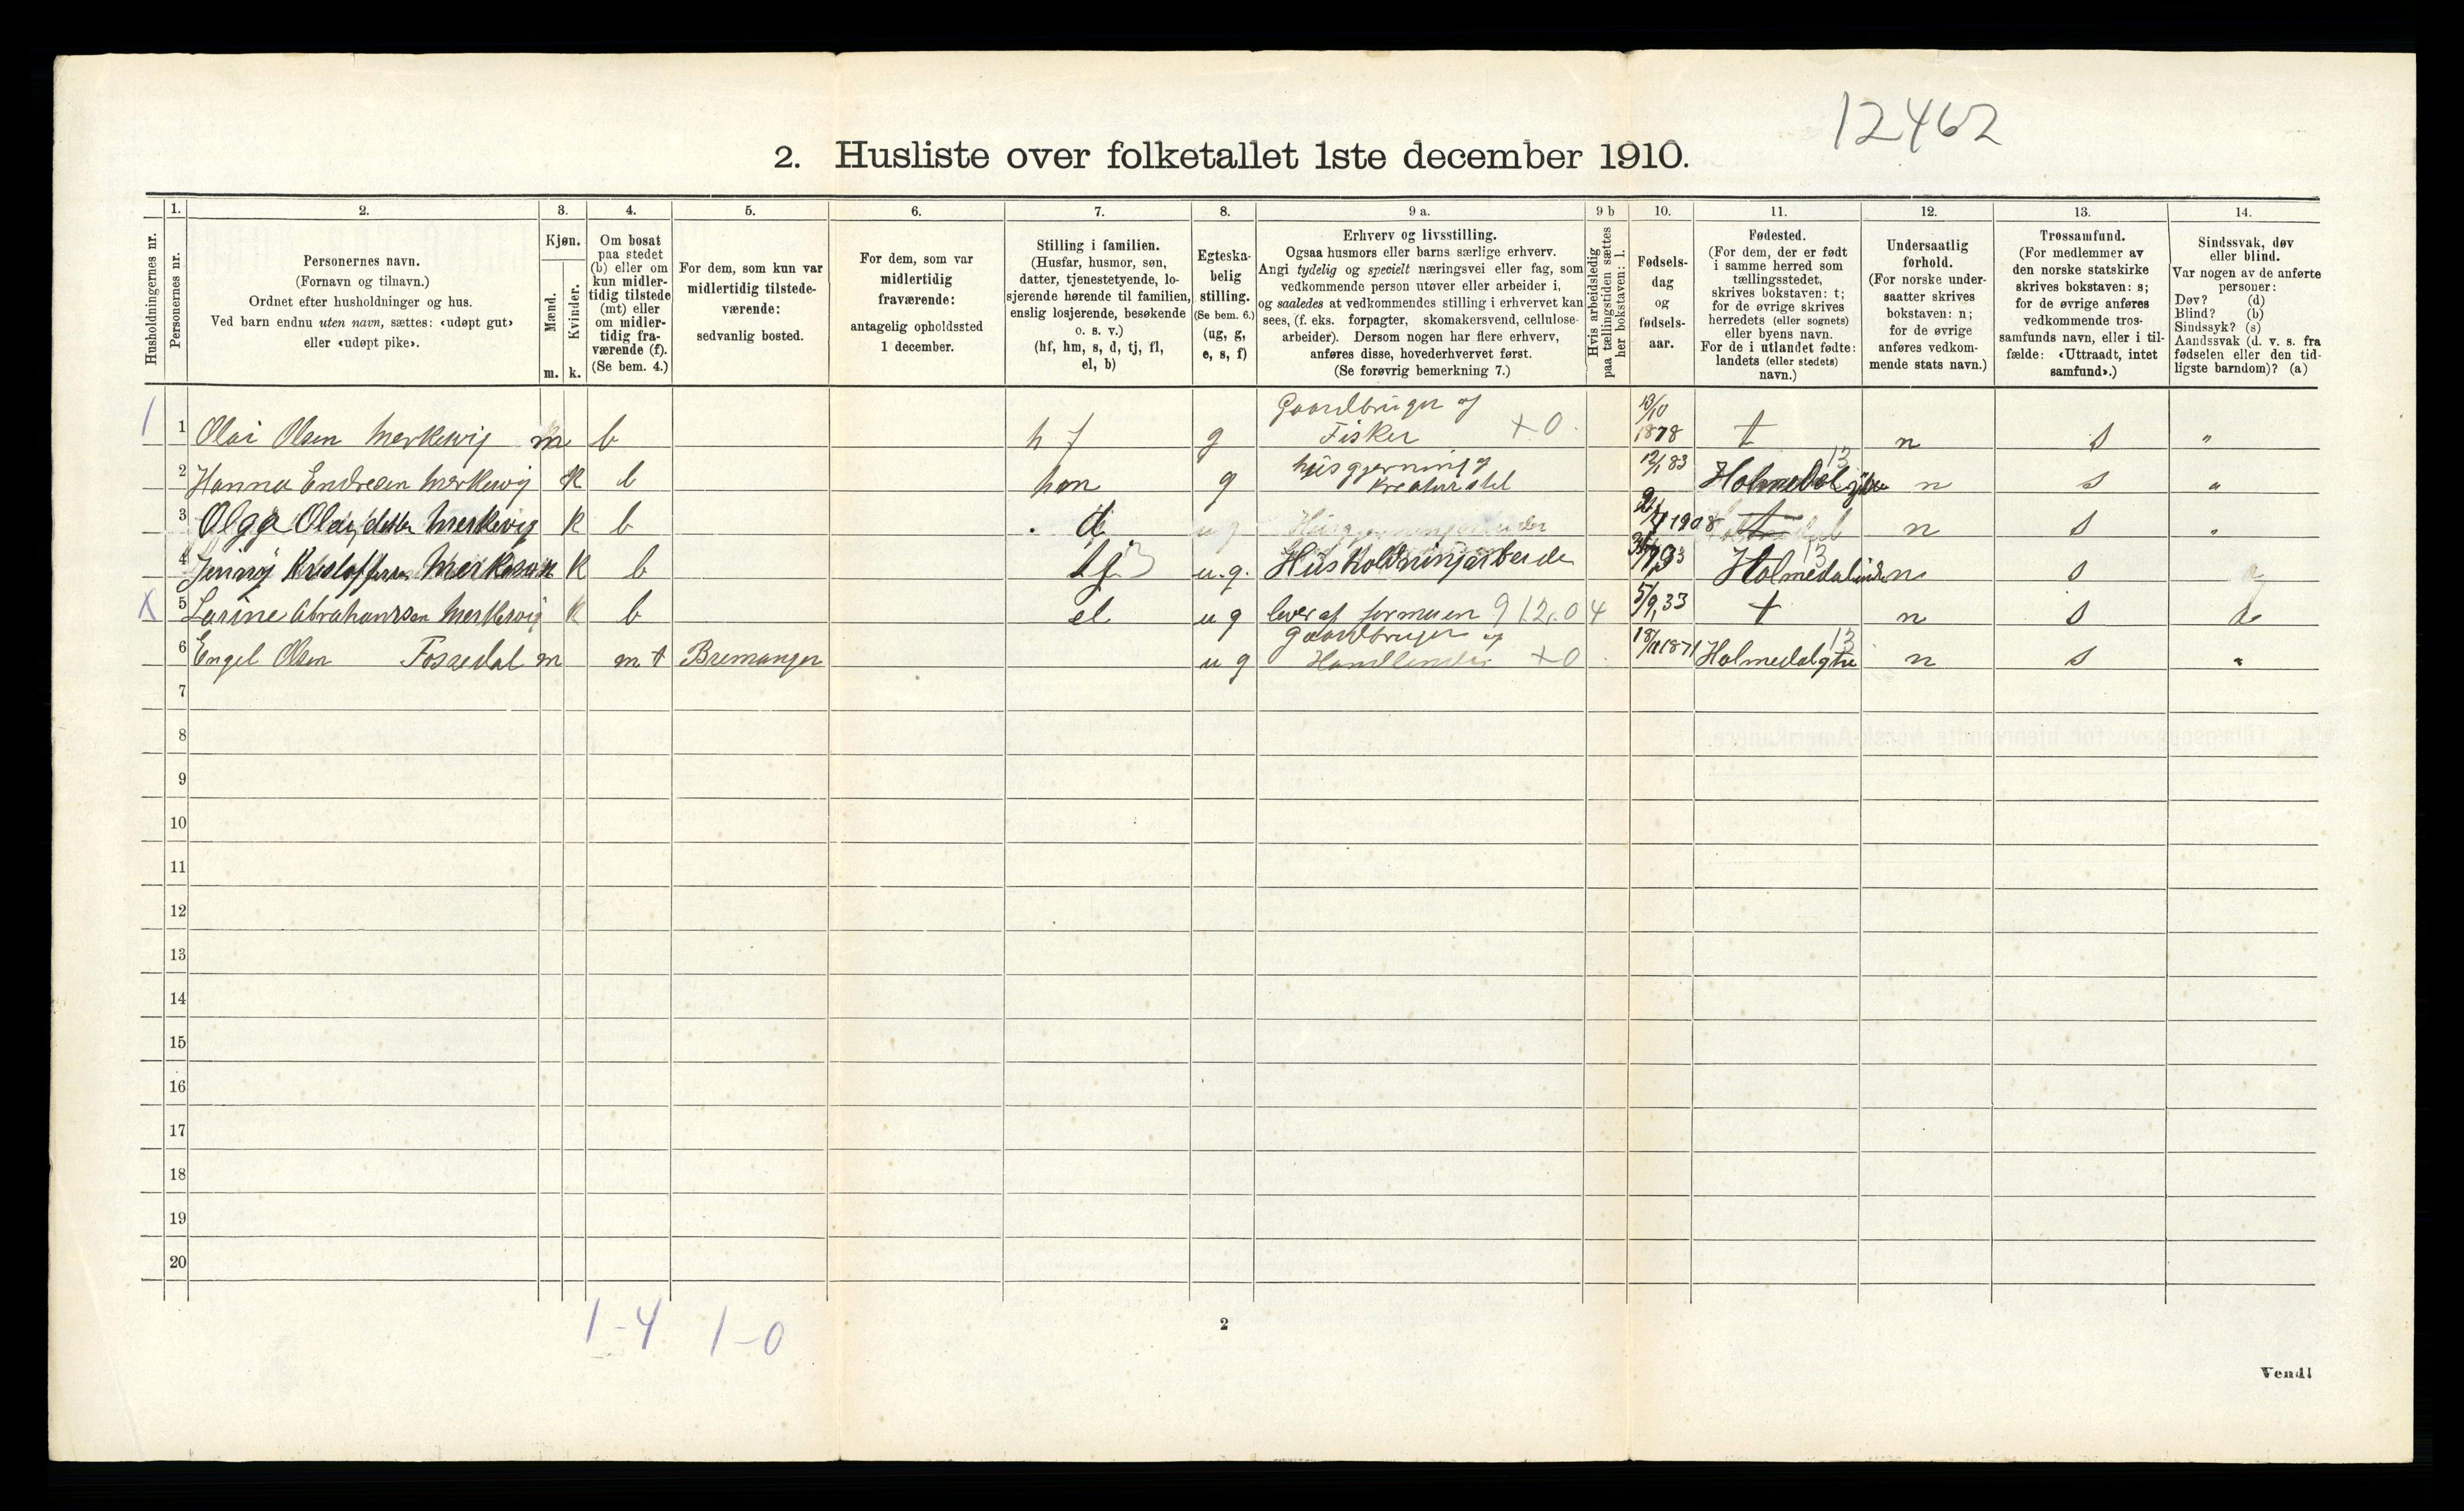 12462
2. Husliste over folketallet 1ste december 1910.
Husholdningernes nr.
1. Personernes nr.
2. Personernes navn.
(Fornavn og tilnavn.)
Ordnet efter husholdninger og hus.
Ved barn endnu uten navn, sættes: «udøpt gut»
eller «udøpt pike».
3. Kjøn.
Mænd. m.
Kvinder. k.
4. Om bosat
paa stedet
(b) eller om
kun midler-
tidig tilstede
(mt) eller
om midler-
tidig fra-
værende (f).
(Se bem. 4.)
5. For dem, som kun var
midlertidig tilstede-
værende:
sedvanlig bosted.
6. For dem, som var
midlertidig
fraværende:
antagelig opholdssted
1 december.
7. Stilling i familien.
(Husfar, husmor, søn,
datter, tjenestetyende, lo-
sjerende hørende til familien,
enslig losjerende, besøkende
o. s. v.)
(hf, hm, s, d, tj, fl,
el, b)
8. Egteska-
belig
stilling.
(Se bem. 6.)
(ug, g,
e, s, f)
9 a. Erhverv og livsstilling.
Ogsaa husmors eller barns særlige erhverv.
Angi tydelig og specielt næringsvei eller fag, som
vedkommende person utøver eller arbeider i,
og saaledes at vedkommendes stilling i erhvervet kan
sees, (f. eks. forpagter, skomakersvend, cellulose-
arbeider). Dersom nogen har flere erhverv,
anføres disse, hovederhvervet først.
(Se forøvrig bemerkning 7.)
9 b Hvis arbeidsledig
paa tællingstiden sættes
her bokstaven: l.
10. Fødsels-
dag
og
fødsels-
aar.
11. Fødested.
(For dem, der er født
i samme herred som
tællingsstedet,
skrives bokstaven: t;
for de øvrige skrives
herredets (eller sognets)
eller byens navn.
For de i utlandet fødte:
landets (eller stedets)
navn.)
12. Undersaatlig
forhold.
(For norske under-
saatter skrives
bokstaven: n;
for de øvrige
anføres vedkom-
mende stats navn.)
13. Trossamfund.
(For medlemmer av
den norske statskirke
skrives bokstaven: s;
for de øvrige anføres
vedkommende tros-
samfunds navn, eller i til-
fælde: «Uttraadt, intet
samfund».)
14. Sindssvak, døv
eller blind.
Var nogen av de anførte
personer:
Døv? (d)
Blind? (b)
Sindssyk? (s)
Aandssvak (d. v. s. fra
fødselen eller den tid-
ligste barndom)? (a)
1 1 Olai Olsen Merkesvig m b hf g Gaardbruger og Fisker +0 13/10 1878 t n s "
2 Hanna Endresen Merkesvig k b hm g husgjerning og kreaturstel 12/1 83 Holmedal ytre 13 n s "
3 Olga Olaidatter Merkesvig k b d 1908 t n s "
4 Jenny Kristoffersen Merkesvik k b tj 3 u.g. Husholdningsarbeide 93 Holmedal indre 13 n s
X 5 Larine Abrahamsen Merkesvig k b el ug lever af formuen 912.04 5/9, 33 t n s d
6 Engel Olsen Fossedal m mt Bremanger ug Gaardbruger og Handlende +0 18/11 1871 Holmedal ytre 13 n s "
7
8
9
10
11
12
13
14
15
16
17
18
19
20
1-4 1-0
2
Vend!